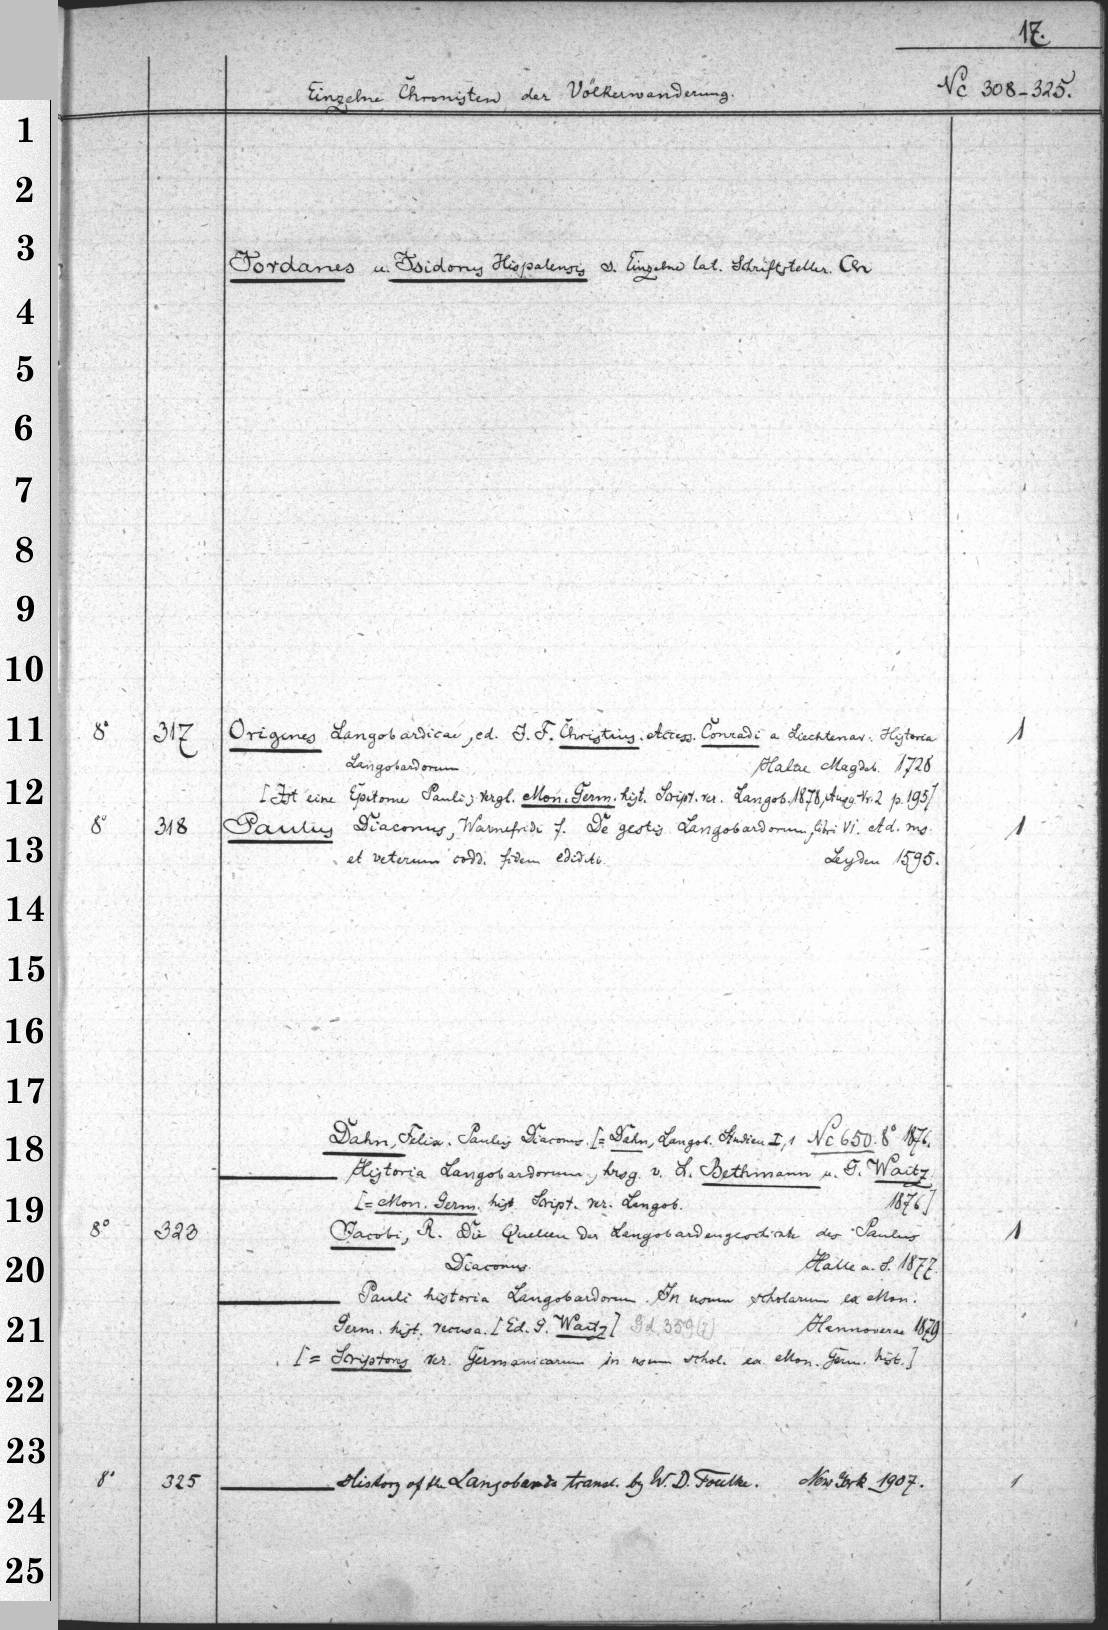 17.
Einzelne Chronisten der Völkerwanderung. Nc 308-325.
1
2
3
Jordanes u. Isidorus Hispalensis s. Einzelne lat. Schriftsteller.
4
5
6
7
8
9
10
11
8° 317 Origines Langobardicae, ed. J. F. Christius. Access. Conradi a Liechtenav. Historia 1
Langobardorum Halae Magdeb. 1728
12
[Ist eine Epitome Pauli; vergl. Mon. Germ. hist. Script. rer. Langob. 1878, p. 195]
8° 318 Paulus Diaconus, Warnefridi f. De gestis Langobardorum, libri VI. Ad. ms. 1
13
et veterum codd. fidem editi. Leyden 1595.
14
15
16
17
18
Dahn, Felix. Paulus Diaconus. [= Dahn, Langob. Studien I, 1 Nc 650. 8° 1876.
Historia Langobardorum, hrsg. v. L. Bethmann u. G. Waitz.
19
[= Mon. Germ. hist. Script. rer. Langob. 1876]
8° 323 Jacobi, R. Die Quellen der Langobardengeschichte des Paulus 1
20
Diaconus. Halle a. S. 1877.
Pauli historia Langobardorum. In usum scholarum ex Mon.
21
Germ. hist. recusa. [Ed. G. Waitz] Gd 359 Hannoverae 1879
[= Scriptores rer. Germanicarum in usum schol. ex Mon. Germ. hist.]
22
23
8° 325 History of the Langobards transl. by W. D. Foulke. New York 1907. 1
24
25